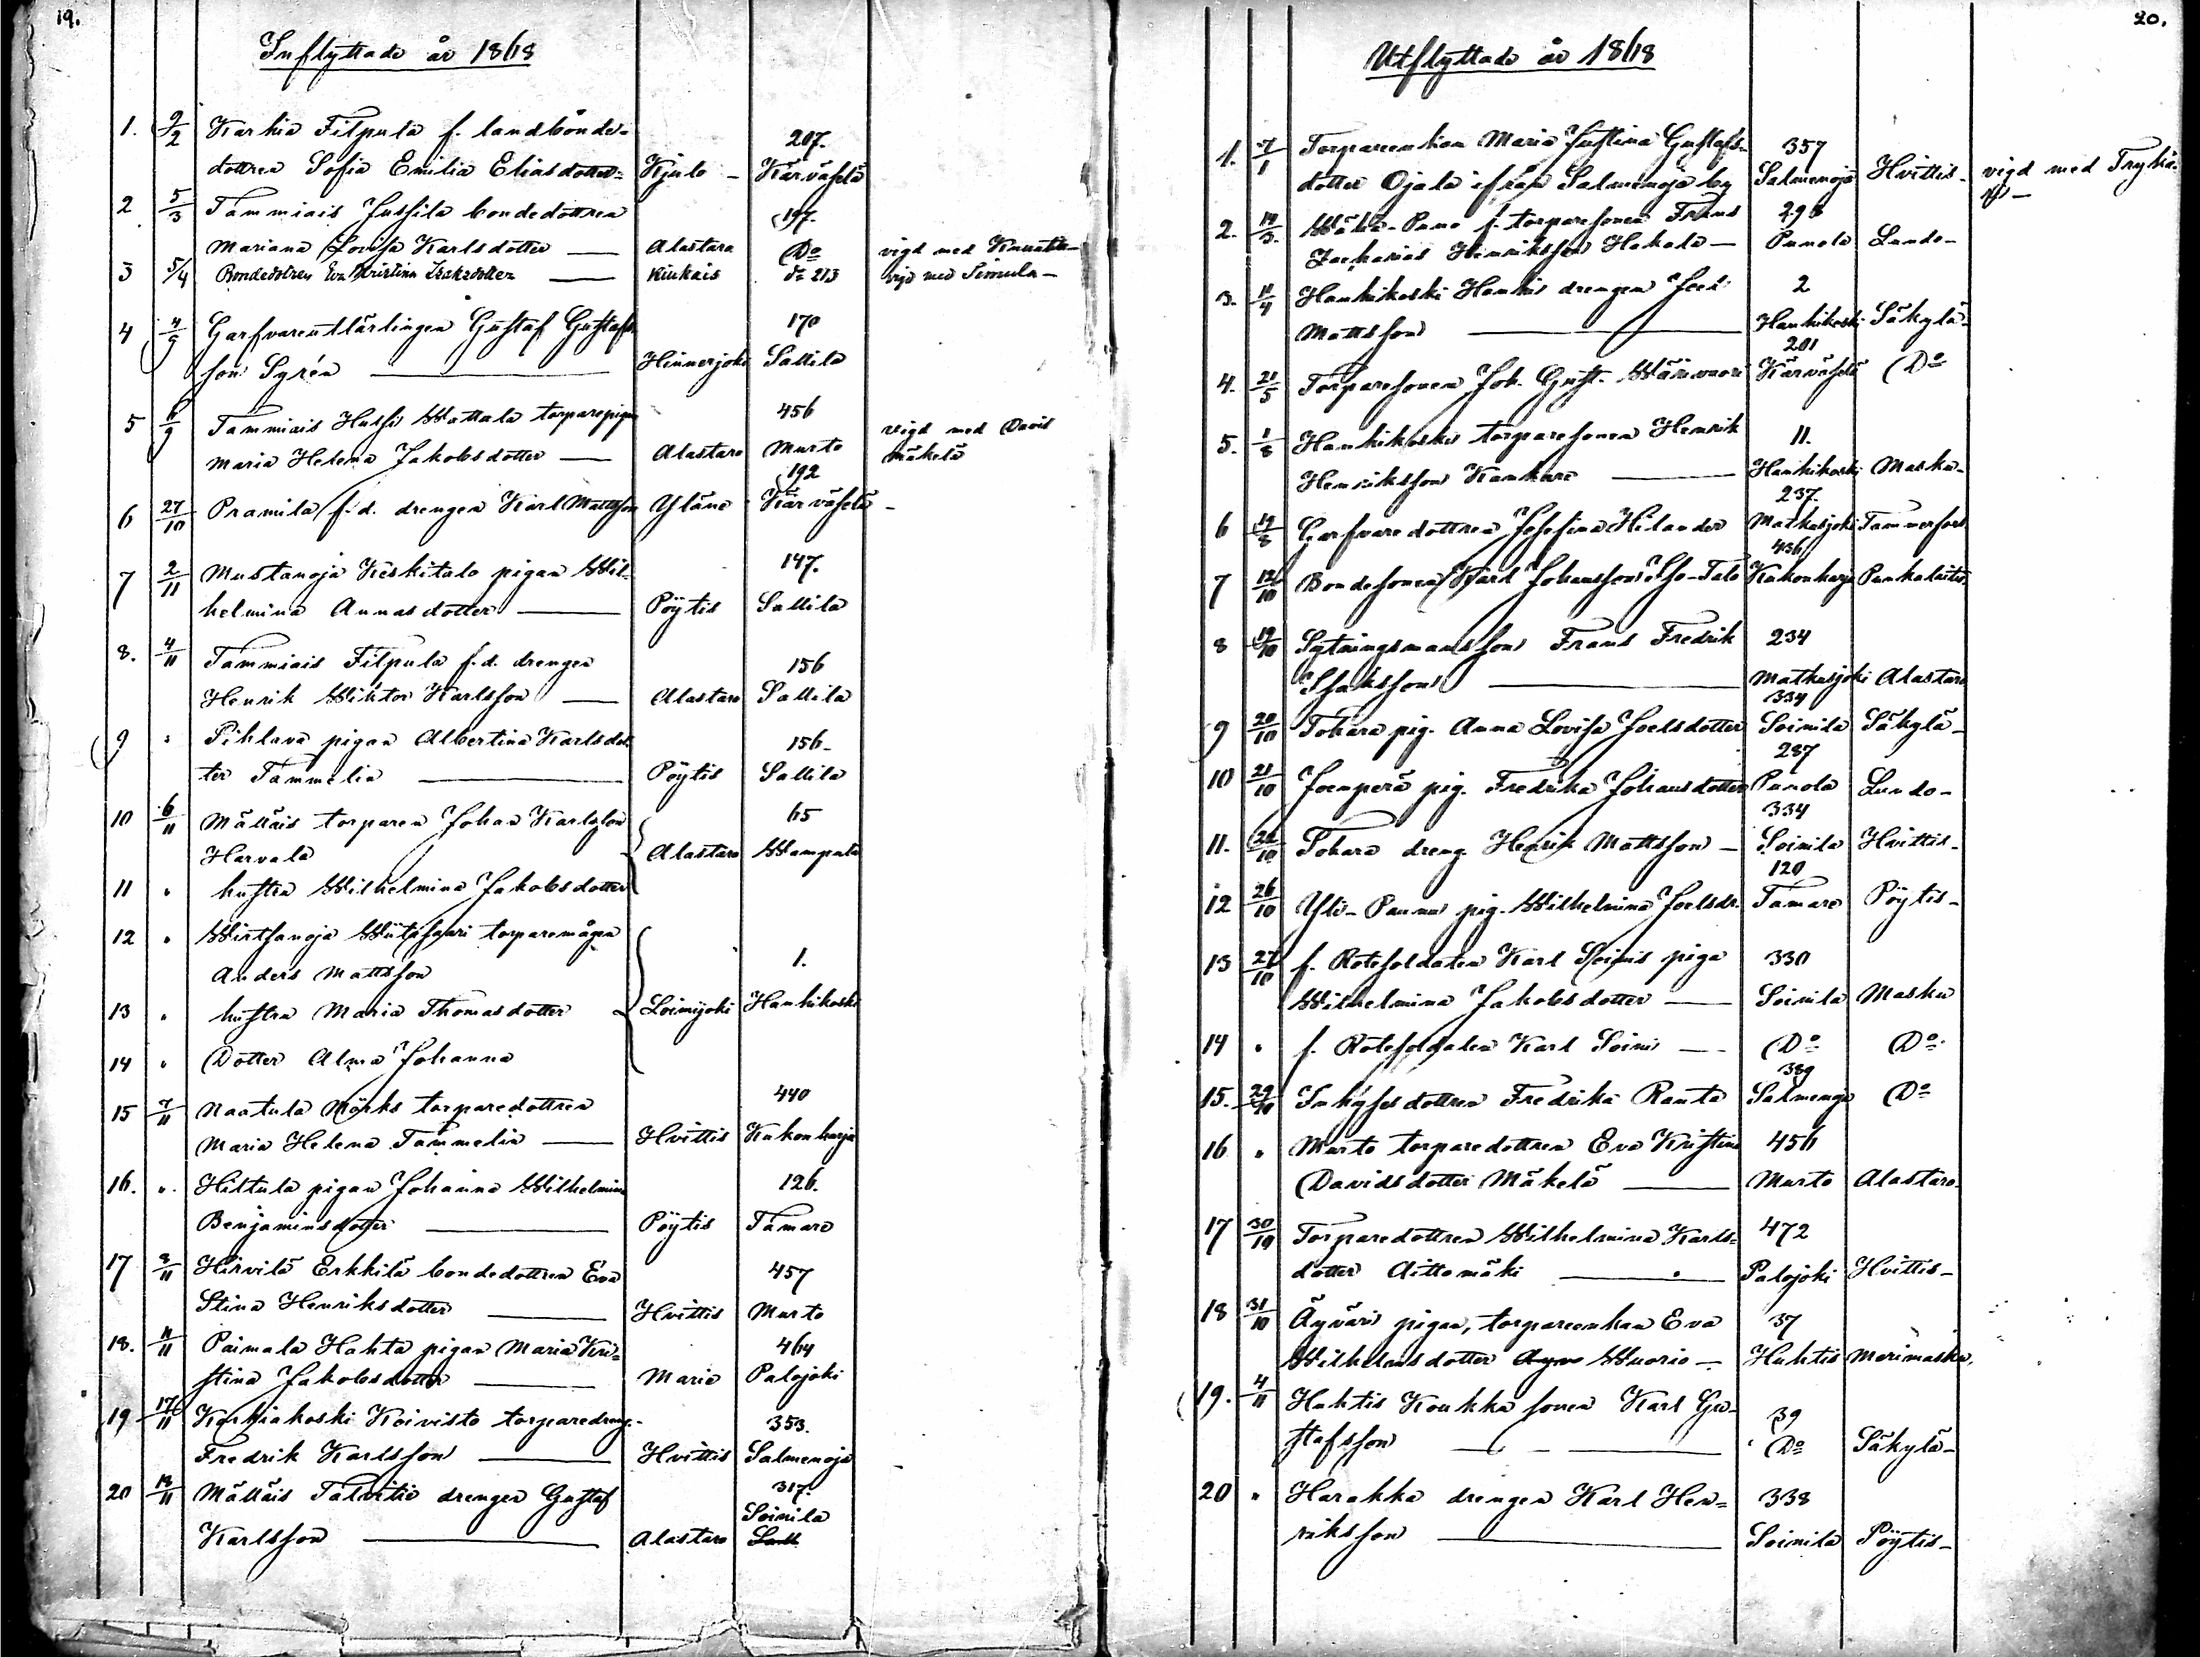 19.
Inflyttade år 1868
1. 2/2 Karhia Filpula f. landbonde-
207.
dottren Sofia Emilia Eliasdotter- Kjulo - Kärväselä
2 5/3 Tammiais Jussila bondedottren
197.
Mariana Lovisa Karlsdotter — Alastaro Do vigd med
3 5/4 Bondedotren Eva Kristina Isaksdotter — Kiukais do 213 vigd med Simula-
4 Garfvarenslärlingen Gustaf Gustafs
170
son Syrén — Hinnerjoki Sallila
5 6/9 Tammiais Hussi Wattala torparepigan
456
Maria Helena Jakobsdotter — Alastaro Murto vigd med David Mäkelä
192
6 27/10 Pramila f.d. drengen Karl Mattsson Yläne Kärväselä -
7 2/11 Mustanoja Keskitalo pigan Wil-
147.
helmina Annasdotter — Pöytis Sallila
8. 4/11 Tammiais Filpula f.d. drengen
156
Henrik Wiktor Karlsson — Alastaro Sallila
9 " Pihlava pigan Albertina Karlsdot-
156-
ter Tammelin — Pöytis Sallila
10 6/11 Mällais torparen Johan Karlsson
65
Harvala Alastaro Wampula
11 " hustru Wilhelmina Jakobsdotter
12 " Wirtsanoja Wiitasaari torparemågen
Anders Mattsson 1.
13 " hustru Maria Thomasdotter Loimijoki Hanhikoski
14 " Dotter Alma Johanna
15 7/11 Naatula Mörks torparedottren
440
Maria Helena Tammelin — Hvittis Kukonharja
16. ". Hiltula pigan Johanna Wilhelmina
126.
Benjaminsdotter — Pöytis Tamare
17 8/11 Hirvilä Erkkilä bondedottren Eva
457
Stina Henriksdotter — Hvittis Murto
18. 11/11 Paimala Hahta pigan Maria Kri-
464
stina Jakobsdotter — Marie Palojoki
19 17/11 Karhiakoski Koivisto torparedreng-
353.
Fredrik Karlsson — Hvittis Salmenoja
20 18/11 Mällais Talvitie drengen Gustaf
317.
Soinila
Karlsson — Alastaro Sall
20.
Utflyttade år 1868
1. 7/1 Torpareenkan Maria Justina Gustafs-
357
dotter Ojala ifrån Salmenoja by Salmenoja Hvittis- vigd med
2. 14/3 Wähä-Puno f. torparesonen Frans
298
Zacharias Henriksson Hakala — Punola Lundo-
3. 11/4 Hanhikoski Hanhis drengen Joel
2
Mattsson — Hanhikoski Säkylä-
201
4. 21/5 Torparesonen Joh. Gust. Wärivuori Kärväselä Do
5. 1/8 Hanhikoski torparesonen Henrik
11.
Henriksson Kankare — Hanhikoski Masku-
237.
6 19/8 Garfvaredottren Josefina Hilander Matkusjoki Tammerfors
436
7 12/10 Bondesonen Karl Johansson Iso-Talo Kukonharja Punkalaitio-
8 19/10 Sytningsmansson Frans Fredrik
234
Isaksson — Matkusjoki Alastaro
334
9 20/10 Tohara pig. Anna Lovisa Joelsdotter Soinila Säkylä-
287
10 21/10 Joenperä pig. Fredrika Johansdotter Punola Lundo-
334
11. 22/10 Tohara dreng Henrik Mattsson — Soinila Hvittis-
120
12 26/10 Yli-Paunu pig. Wilhelmina Joelsdr. Tamare Pöytis-
13 27/10 f. Rotesoldaten Karl Soinis piga
330
Wilhelmina Jakobsdotter — Soinila Masku
14 " f. Rotesoldaten Karl Soini — Do Do
389
15. 29/10 Inhysesdottren Fredrika Ranta Salmenoja Do
16 " Murto torparedottren Eva Kristina
456
Davidsdotter Mäkelä — Murto Alastaro-
17 30/10 Torparedottren Wilhelmina Karls-
472
dotter Aittomäki — Palojoki Hvittis-
18 31/10 Äyväri pigan, torpareenkan Eva
37
Wilhelmsdotter Wuorio — Huhtis Merimasku
19. 4/11 Huhtis Koukka sonen Karl Gu-
39
stafsson — Do Säkylä-
20 " Harakka drengen Karl Hen-
338
riksson — Soinila Pöytis-